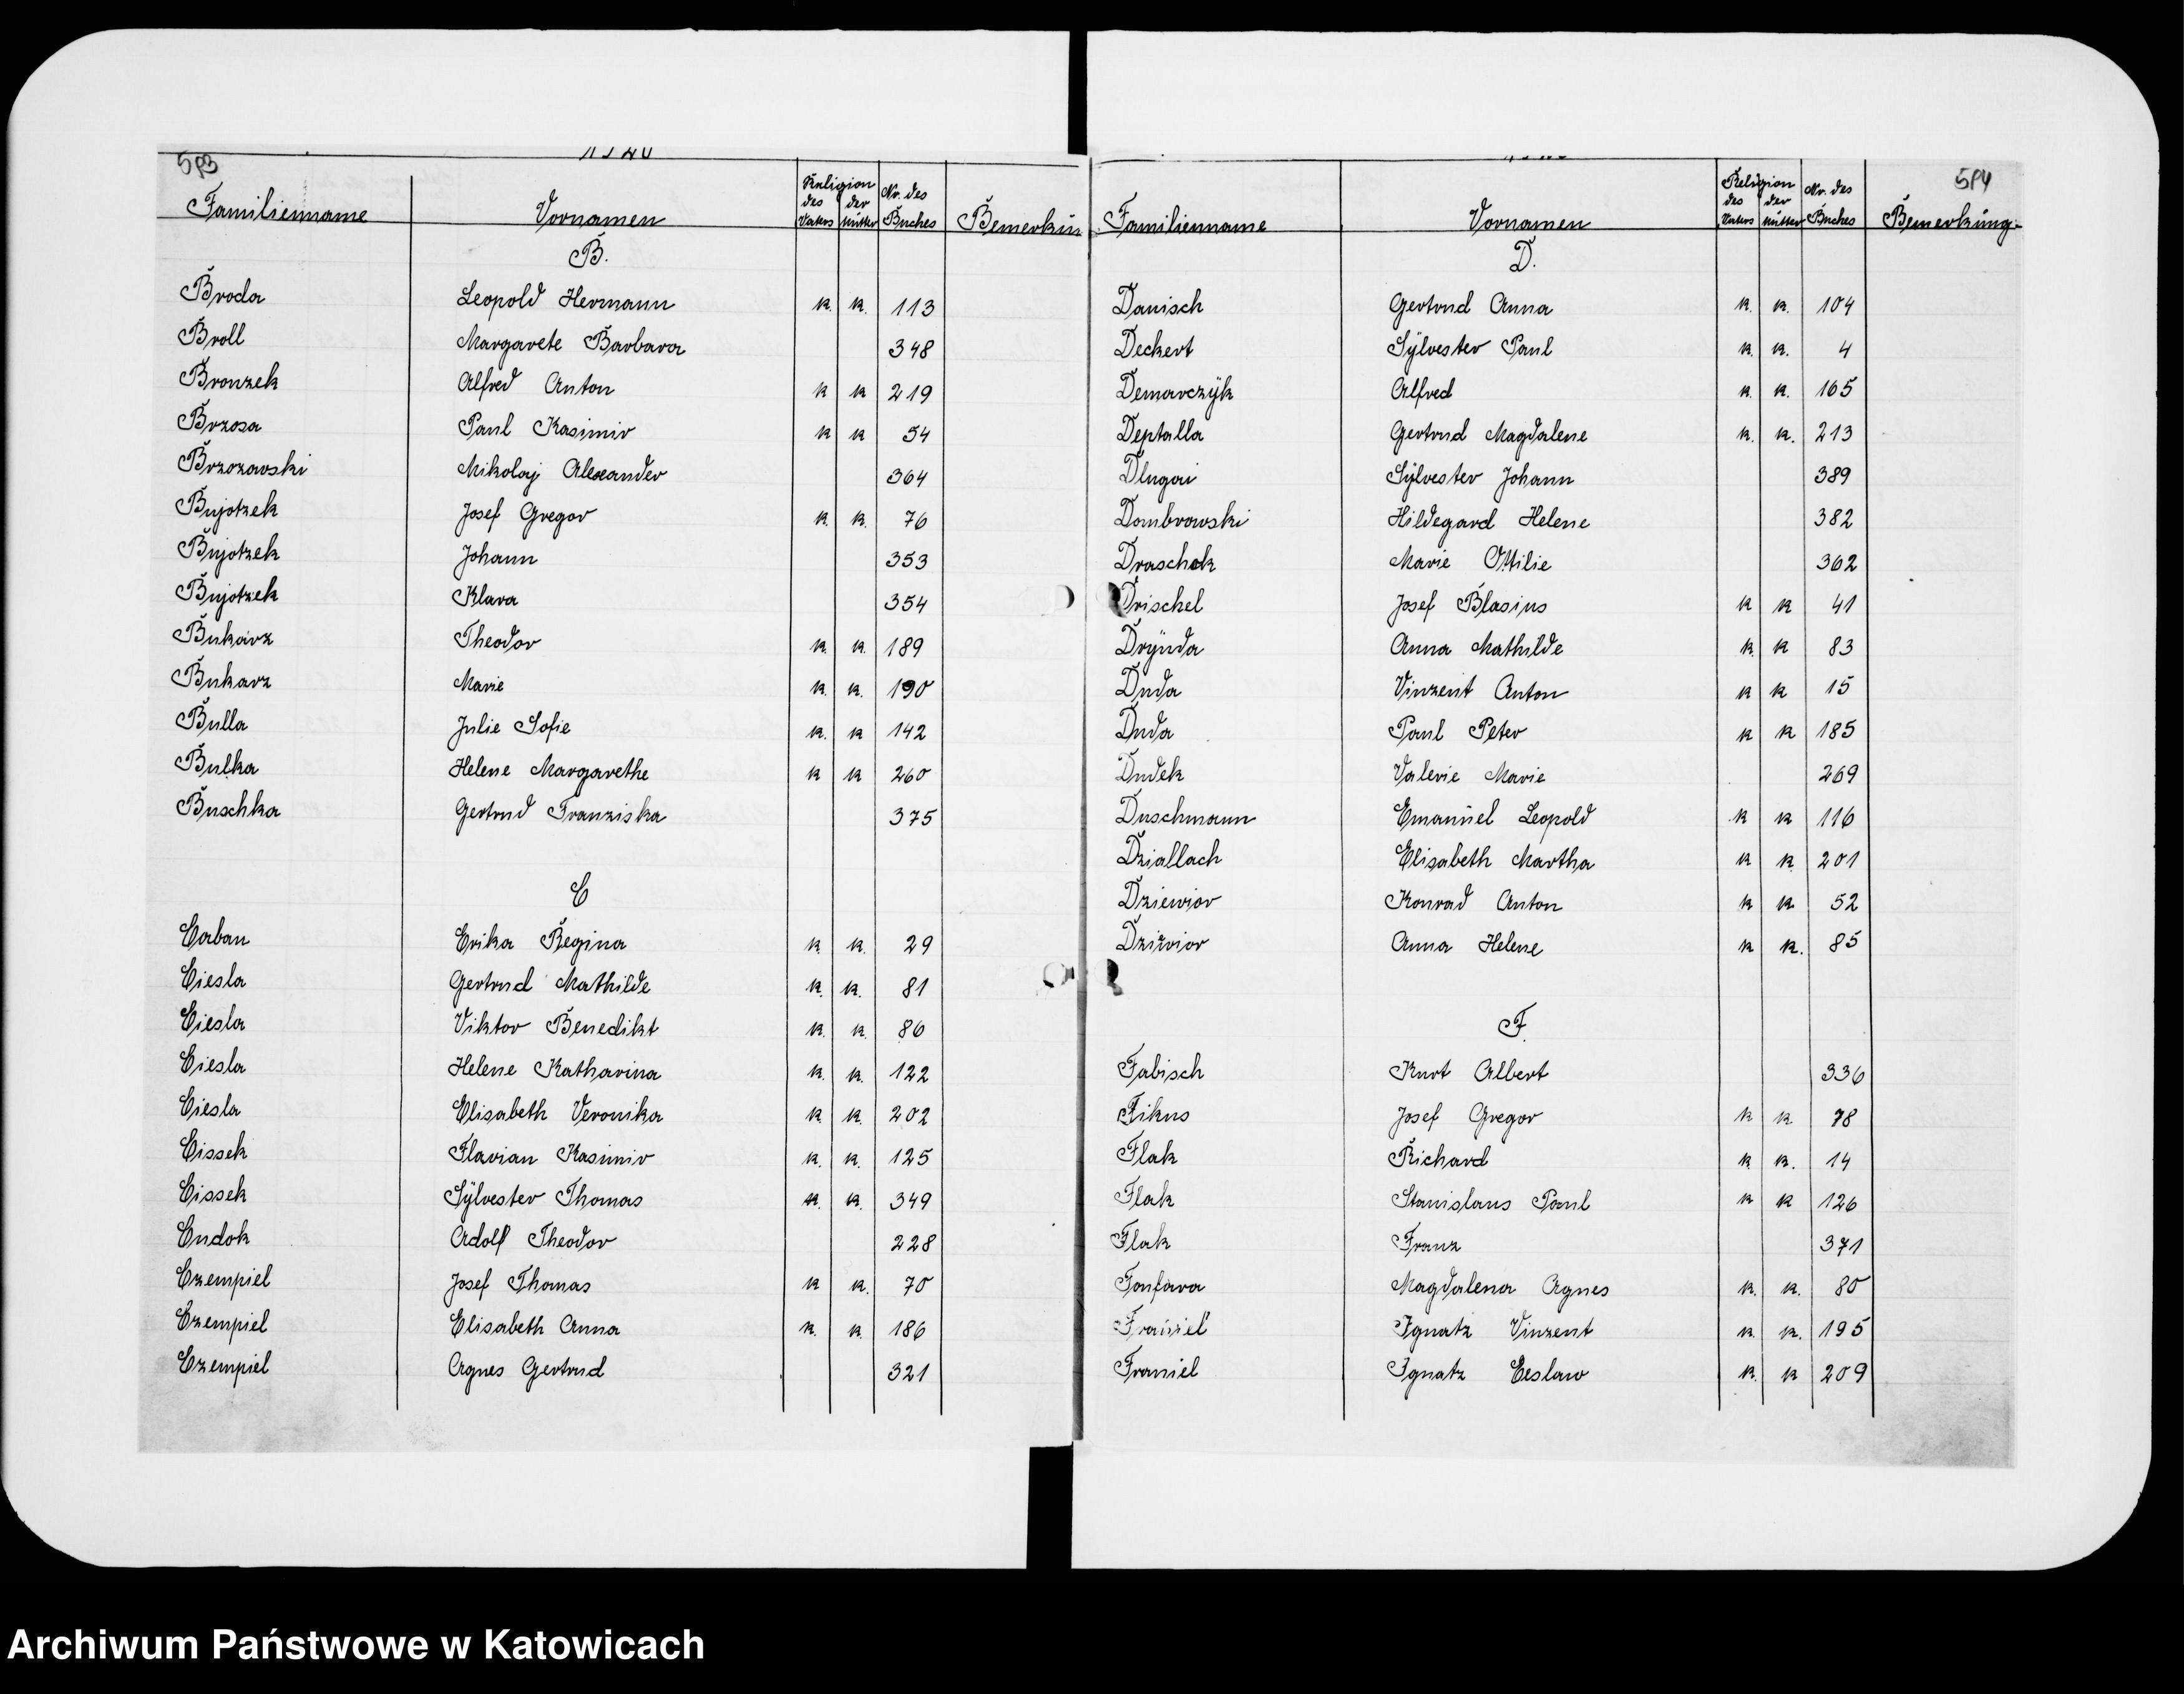 593
1940
Familienname Vornamen Religion des Vaters der Mutter Nr. des Buches Bemerkun
B.
Broda Leopold Hermann k. k. 113
Broll Margarete Barbara 348
Bronzek Alfred Anton k k 219
Brzosa Paul Kasimir k k 54
Brzozowski Mikolaj Alexander 364
Bujotzek Josef Gregor k. k. 76
Bujotzek Johann 353
Bujotzek Klara 354
Bukarz Theodor k. k. 189
Bukarz Marie k. k. 190
Bulla Julie Sofie k. k 142
Bulka Helene Margarethe k k 260
Buschka Gertrud Franziska 375
C
Caban Erika Regina k. k. 29
Ciesla Gertrud Mathilde k. k. 81
Ciesla Viktor Benedikt k. k. 86
Ciesla Helene Katharina k. k. 122
Ciesla Elisabeth Veronika k. k. 202
Cissek Flavian Kasimir k. k. 125
Cissek Sylvester Thomas k. k. 349
Cudok Adolf Theodor 228
Czempiel Josef Thomas k k. 70
Czempiel Elisabeth Anna k. k. 186
Czempiel Agnes Gertrud 321
594
Familienname Vornamen Religion des Vaters der Mutter Nr. des Buches Bemerkung.
D.
Danisch Gertrud Anna k. k. 104
Deckert Sylvester Paul k. k. 4
Demarczyk Alfred k. k. 165
Deptalla Gertrud Magdalene k. k. 213
Dlugai Sylvester Johann 389
Dombrowski Hildegard Helene 382
Draschok Marie Ottilie 362
Drischel Josef Blasius k k 41
Drynda Anna Mathilde k. k 83
Duda Vinzent Anton k k 15
Duda Paul Peter k k 185
Dudek Valerie Marie 269
Duschmann Emanuel Leopold k k 116
Dziallach Elisabeth Martha k k. 201
Dziewior Konrad Anton k k 52
Dziwior Anna Helene k k. 85
F.
Fabisch Kurt Albert 336
Fikus Josef Gregor k k. 78
Flak Richard k k. 14
Flak Stanislaus Paul k k 126
Flak Franz 371
Fonfara Magdalena Agnes k. k. 80
Franiel Ignatz Vinzent k. k. 195
Franiel Ignatz Ceslaw k. k 209
Archiwum Państwowe w Katowicach